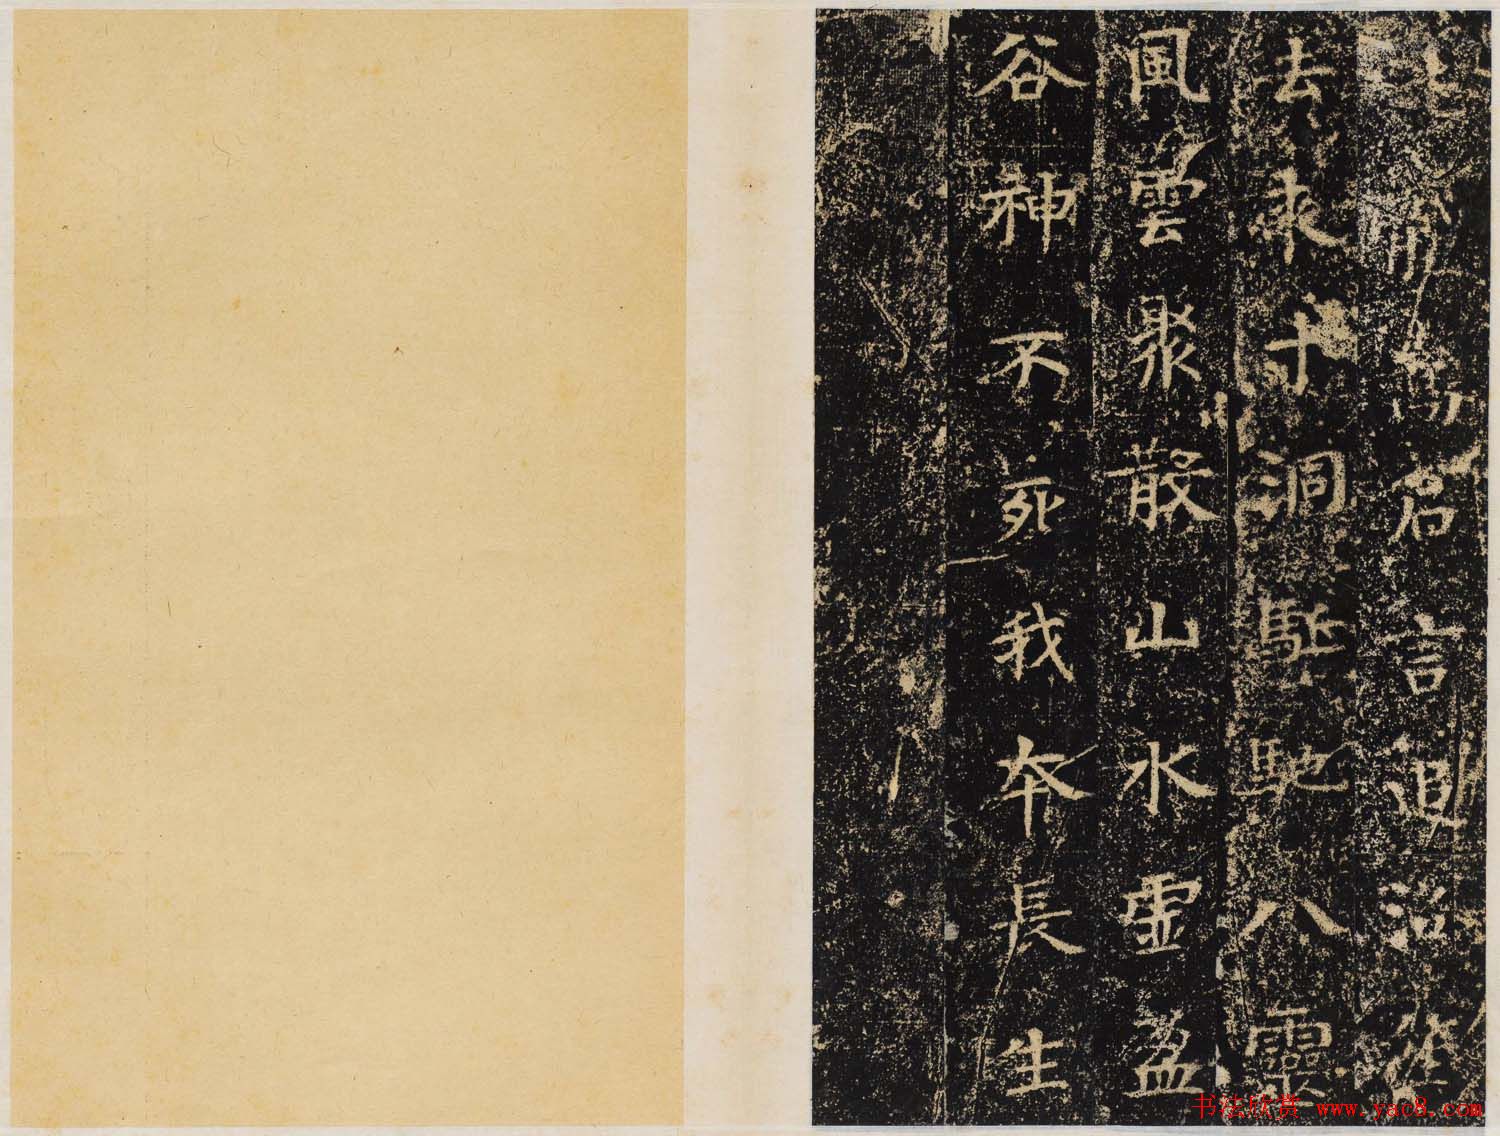 言
去來寸洞駈馳八靈
風雲聚散山水虛盈
谷神不死我夲長生
书法欣赏 www.yac8.com